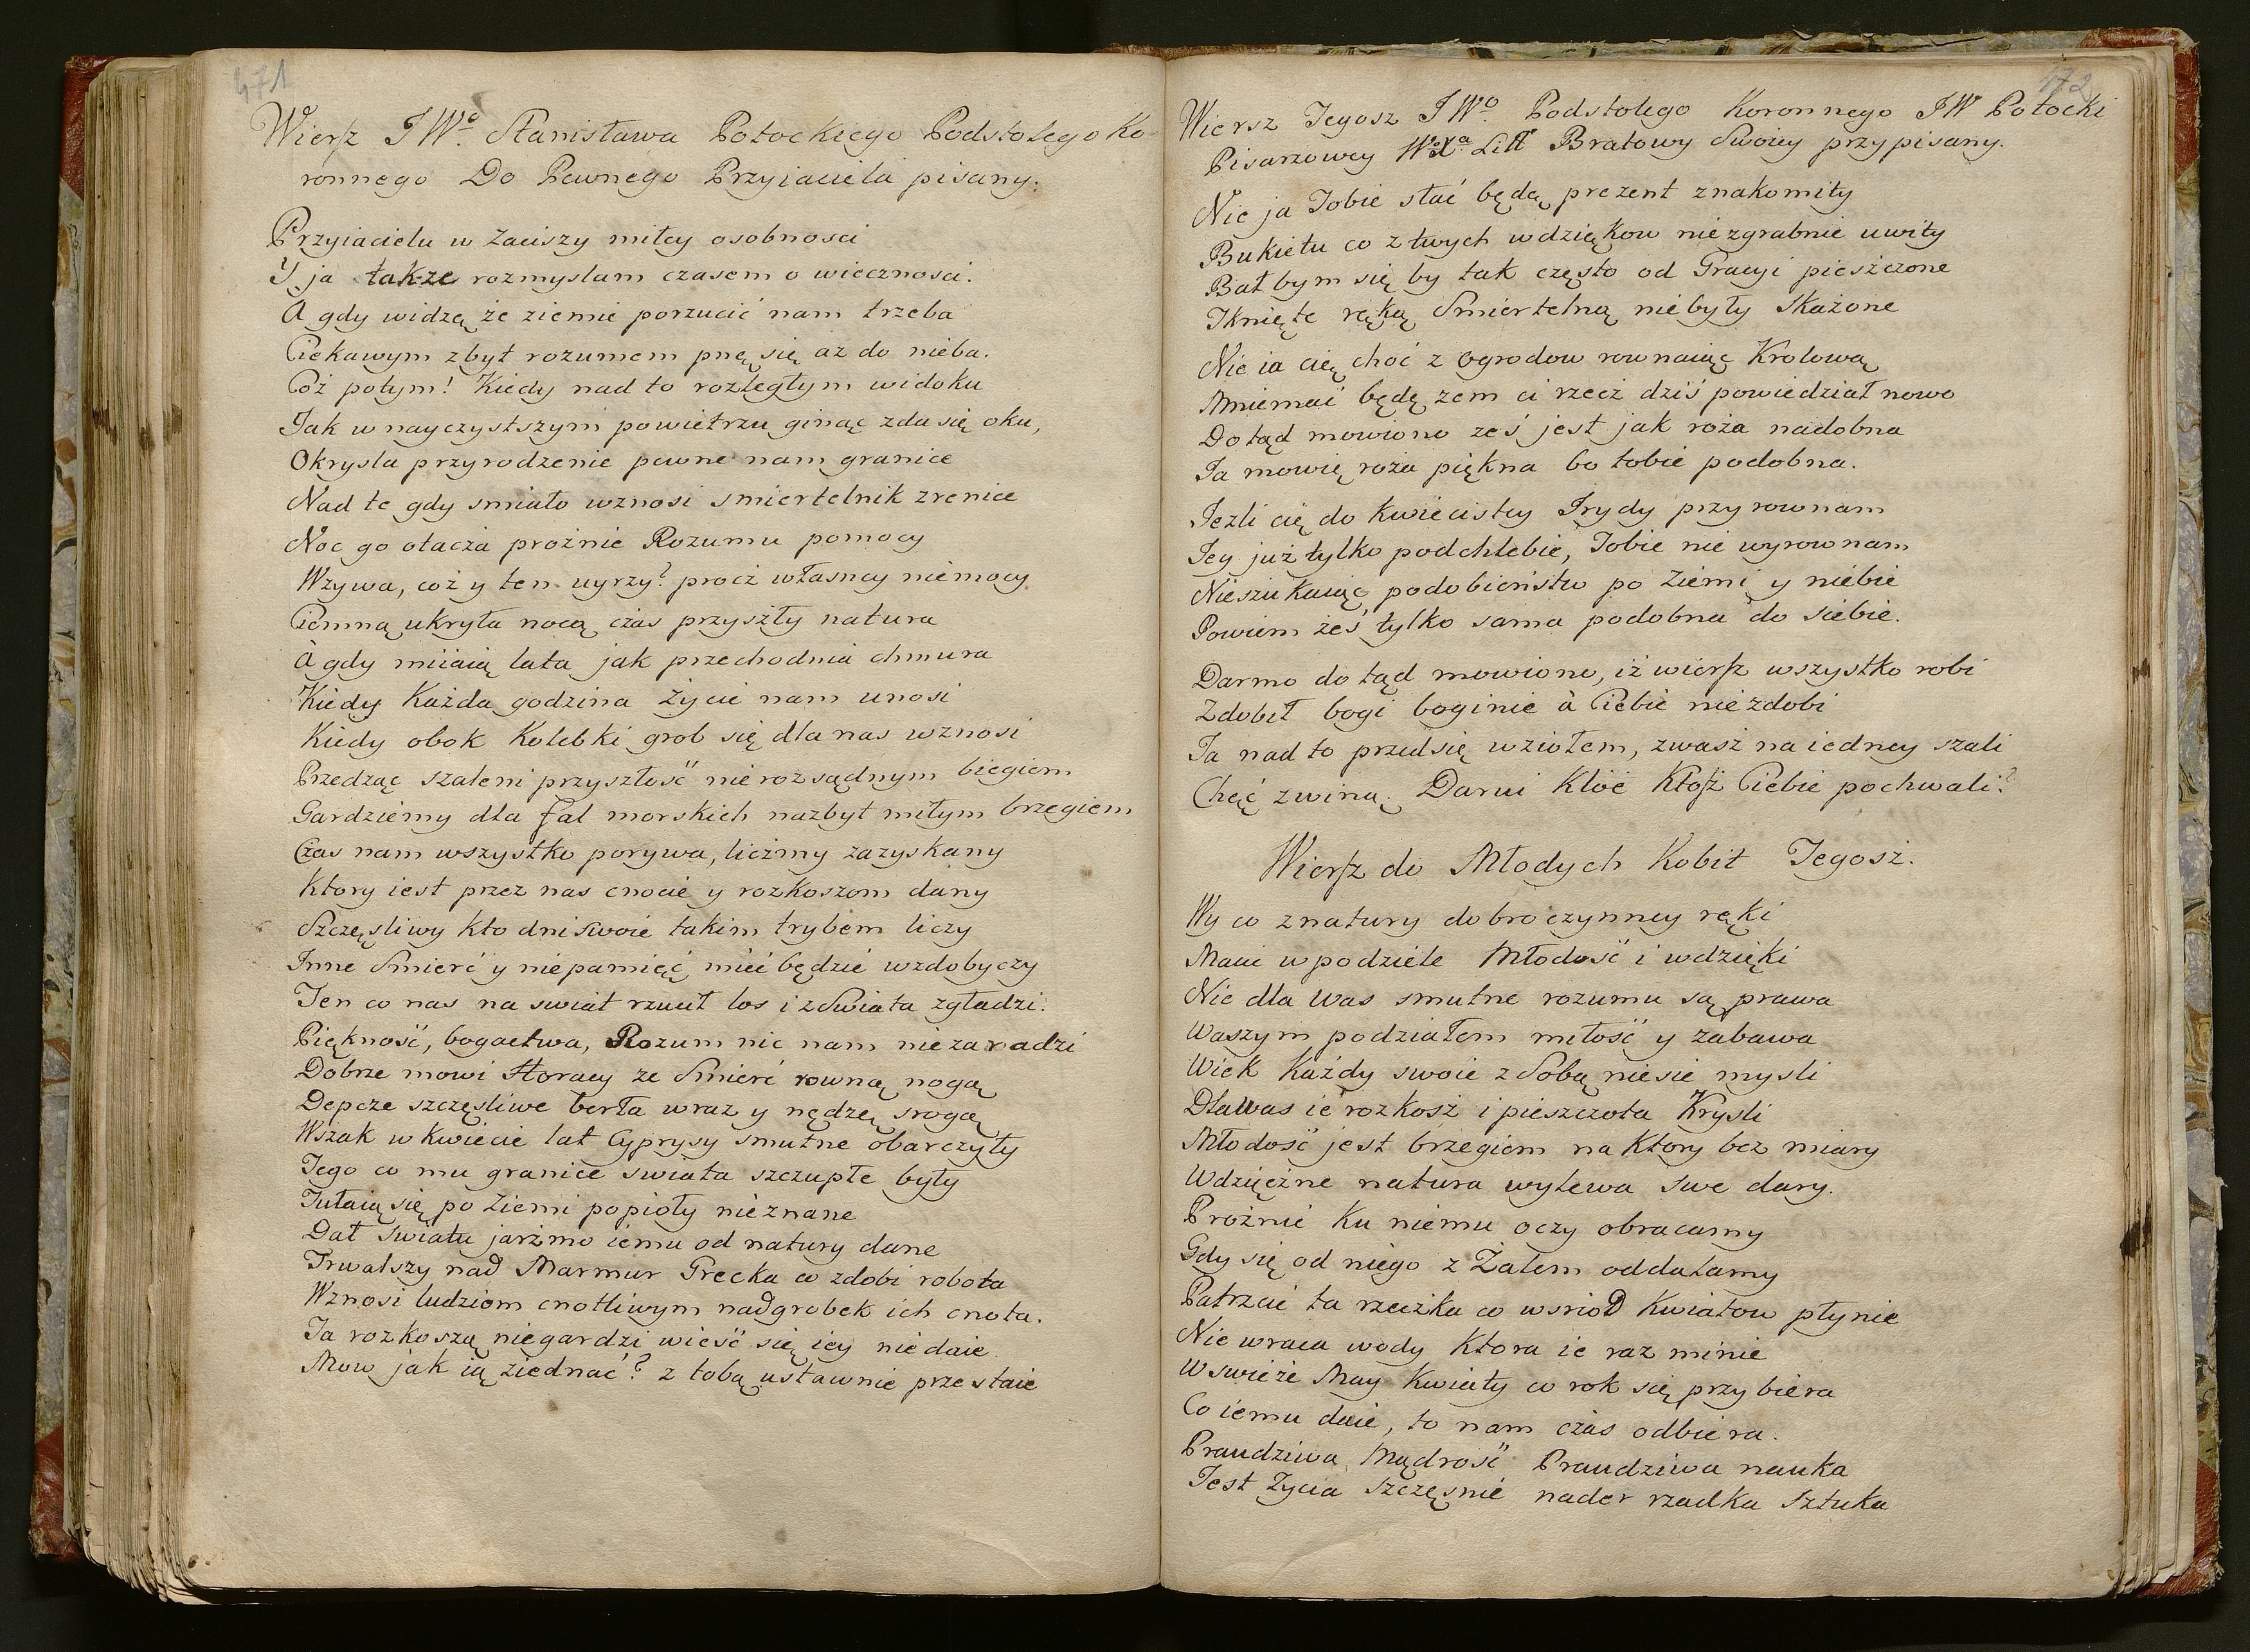 471
Wiersz JWo. Stanisława Potockiego Podstolego Ko-
ronnego Do Pewnego Przyiaciela pisany.
Przyiacielu w zaciszy miłey osobnosci
Y ja takze rozmyslam czasem o wiecznosci.
A gdy widzę że ziemie porzucić nam trzeba
Ciekawym zbyt rozumem pnę się az do nieba.
Cóż potym! Kiedy nad to rozległym widoku
Jak w nayczystszym powietrzu ginąc zda się oku,
Okrysla przyrodzenie pewne nam granice
Nad te gdy smiało wznosi smiertelnik zrenice
Noc go otacza prożnie Rozumu pomocy
Wzywa, coż y ten uyrzy? procz własney niemocy
Ciemną ukryła nocą czas przyszły natura
à gdy miiaią lata jak przechodnia chmura
Kiedy Każda godzina życie nam unosi
Kiedy obok Kolebki grob się dla nas wznosi
Przedząc szaleni przyszłość nierozsądnym biegiem
Gardziemy dla fal morskich nazbyt miłym brzegiem
Czas nam wszystko porywa, liczmy zazyskany
Ktory iest przez nas cnocie y rozkoszom dany
Szczęsliwy kto dni swoie takim trybem liczy
Inne Smierć y niepamięć mieć będzie wzdobyczy
Ten co nas na swiat rzucił los i z Swiata zgładzi.
Piękność, bogactwa, Rozum nic nam niezaradzi
Dobrze mowi Horacy ze Smierć rowną nogą
Depcze szczęsliwe berła wraz y nędzę srogą
Wszak w kwiecie lat Cyprysy smutne obarczyły
Tego co mu granice swiata szczupłe były
Tułaią się po Ziemi popioły nieznane
Dał swiatu jarzmo iemu od natury dane
Trwalszy nad Marmur Grecka co zdobi robota
Wznosi ludziom cnotliwym nadgrobek ich cnota.
Ja rozkoszą niegardzi wieść się iey niedaie
Mow jak ią ziednać? z tobą ustawnie przestaie
472
Wiersz Tegosz JWo. Podstolego Koronnego JW Potocki
Pisarzowey WoXa Litt Bratowy Swoiey przypisany.
Nie ja Tobie słać będę prezent znakomity
Bukietu co z twych wdziękow niezgrabnie uwity
Bał bym się by tak często od Gracyi pieszczone
Tknięte ręką Smiertelną niebyły Skażone
Nie ia cię choć z ogrodow rownaiąc Krolową
Mniemać będę zem ci rzecz dziś powiedział nowo
Dotąd mowiono ześ jest jak roża nadobna
Ja mowię roża piękna bo tobie podobna.
Jezli cię do Kwiecistey Irydy przyrownam
Jey już tylko podchlebie, Tobie nie wyrownam
Nieszukaiąc podobieństw po Ziemi y niebie
Powiem żeś tylko sama podobna do siebie.
Darmo do tąd mowiono, iż wiersz wszystko robi
Zdobił bogi boginie à Ciebie niezdobi
Ja nad to przedsię wziołem, zwasz na iedney szali
Chęć z winą. Darui Kloe Ktosz Ciebie pochwali?
Wiersz do Młodych Kobit Tegosz.
Wy co z natury dobroczynney ręki
Macie w podziele Młodość i wdzięki
Nie dla Was smutne rozumu są prawa
Waszym podziałem miłość y zabawa
Wiek Każdy swoie z Sobą niesie mysli
Dla Was ie rozkosz i pieszczota Krysli
Młodość jest brzegiem na Ktory bez miary
Wdzięczne natura wylewa swe dary.
Prożnie Ku niemu oczy obracamy
Gdy się od niego z Żalem oddalamy
Patrzcie ta rzeczka co wsriod Kwiatow płynie
Nie wraca wody Ktora ie raz minie
W swieże May Kwiaty co rok się przybiera
Co iemu daie, to nam czas odbiera.
Prawdziwa Mądrość Prawdziwa nauka
Jest Zycia szczęsnie nader rzadka Sztuka